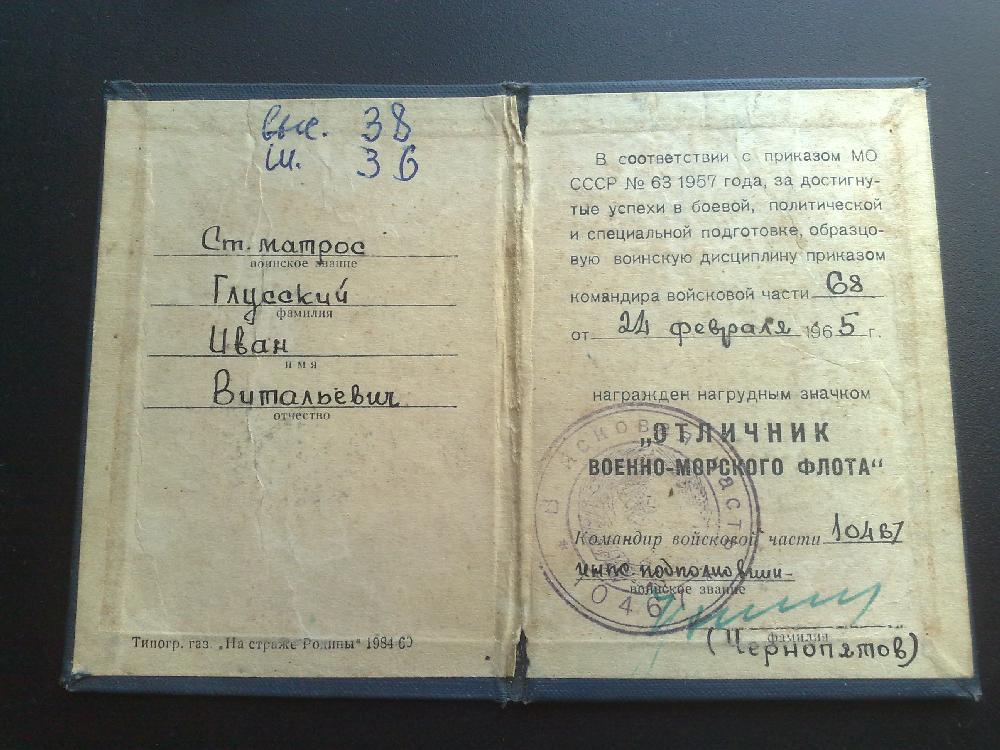 выс. 38
ш. 36
Ст. матрос
воинское звание
Глусский
фамилия
Иван
имя
Витальевич
отчество
Типогр. газ. „На страже Родины" 1984-60
В соответствии с приказом МО
СССР № 63 1957 года, за достигну-
тые успехи в боевой, политической
и специальной подготовке, образцо-
вую воинскую дисциплину приказом
командира войсковой части 68
от 24 февраля 1965 г.
награжден нагрудным значком
„ОТЛИЧНИК
ВОЕННО-МОРСКОГО ФЛОТА"
Войсковая часть
Командир войсковой части 10467
подполковник
воинское звание
фамилия
(Чернопятов)